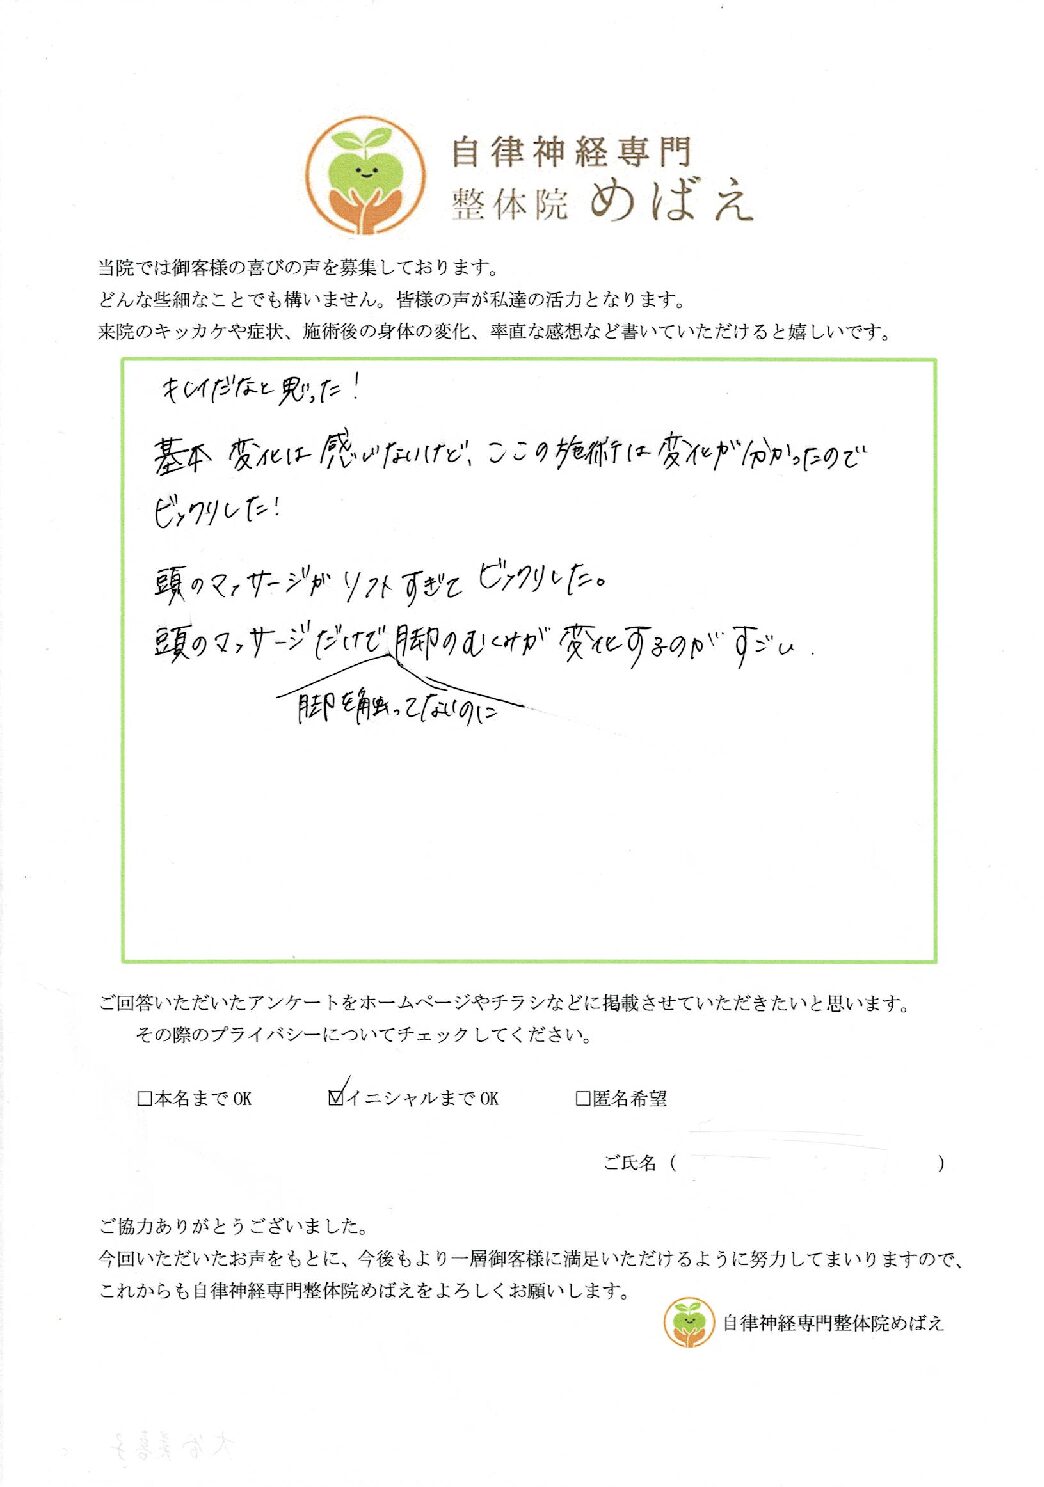 自律神経専門
整体院 めばえ
当院では御客様の喜びの声を募集しております。
どんな些細なことでも構いません。皆様の声が私達の活力となります。
来院のキッカケや症状、施術後の身体の変化、率直な感想など書いていただけると嬉しいです。
キレイだなと思った!
基本 変化は感じないけど、ここの施術は変化が分かったので
ビックリした!
頭のマッサージがソフトすぎてビックリした。
頭のマッサージだけで脚のむくみが変化するのがすごい.
脚を触ってないのに
ご回答いただいたアンケートをホームページやチラシなどに掲載させていただきたいと思います。
その際のプライバシーについてチェックしてください。
□本名までOK ☑イニシャルまでOK □匿名希望
ご氏名（ ）
ご協力ありがとうございました。
今回いただいたお声をもとに、今後もより一層御客様に満足いただけるように努力してまいりますので、
これからも自律神経専門整体院めばえをよろしくお願いします。
自律神経専門整体院めばえ